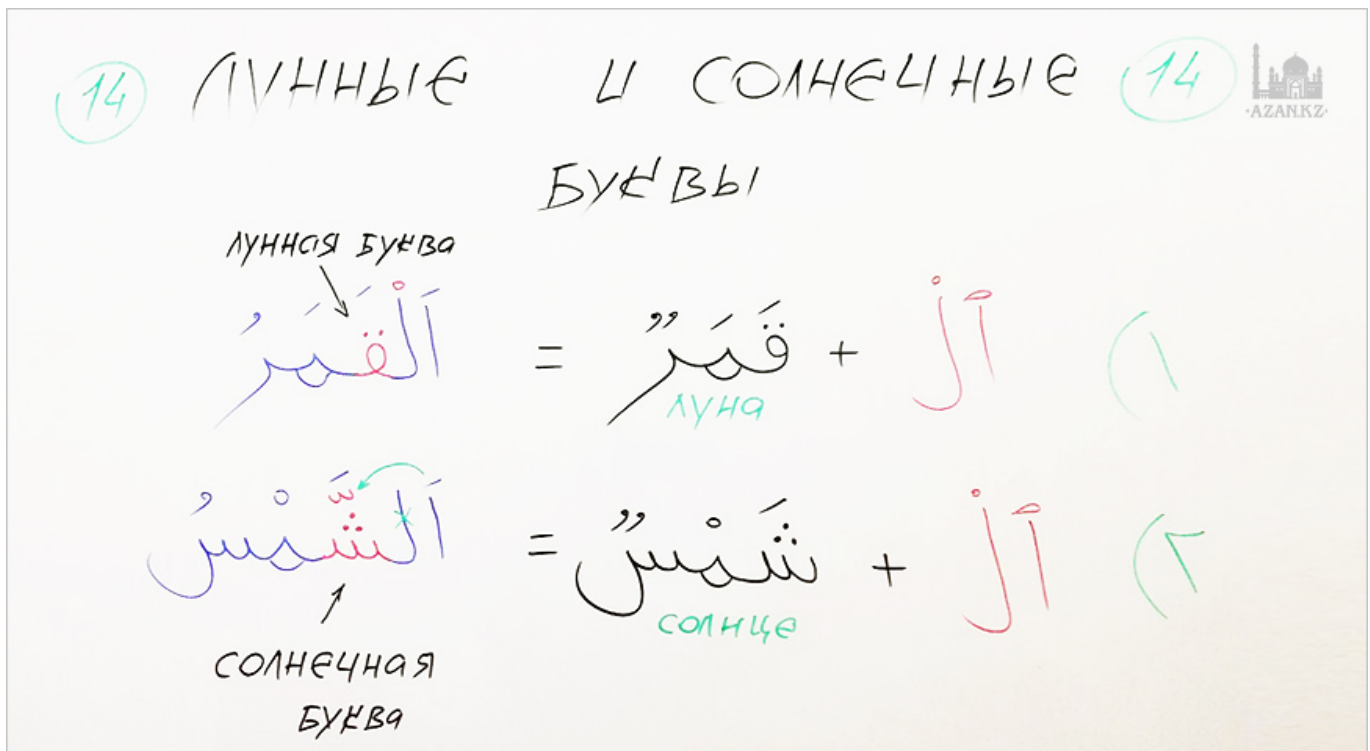 14 ЛУННЫЕ И СОЛНЕЧНЫЕ 14
·AZAN.KZ·
БУКВЫ
ЛУННАЯ БУКВА
١) اَلْ + قَمَرٌ = اَلْقَمَرُ
луна
٢) اَلْ + شَمْسٌ = اَلشَّمْسُ
солнце
СОЛНЕЧНАЯ
БУКВА